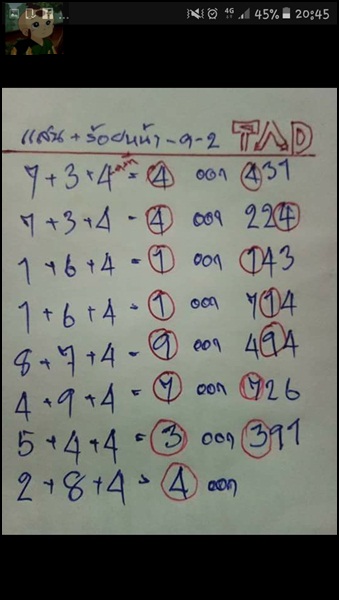 4G 45% 20:45
แสน + ร้อยหน้า - ๑ - 2 TAD
7 + 3 + 4 = 4 ออก 437
7 + 3 + 4 = 4 ออก 224
1 + 6 + 4 = 1 ออก 143
1 + 6 + 4 = 1 ออก 714
8 + 7 + 4 = 9 ออก 494
4 + 9 + 4 = 7 ออก 726
5 + 4 + 4 = 3 ออก 397
2 + 8 + 4 = 4 ออก